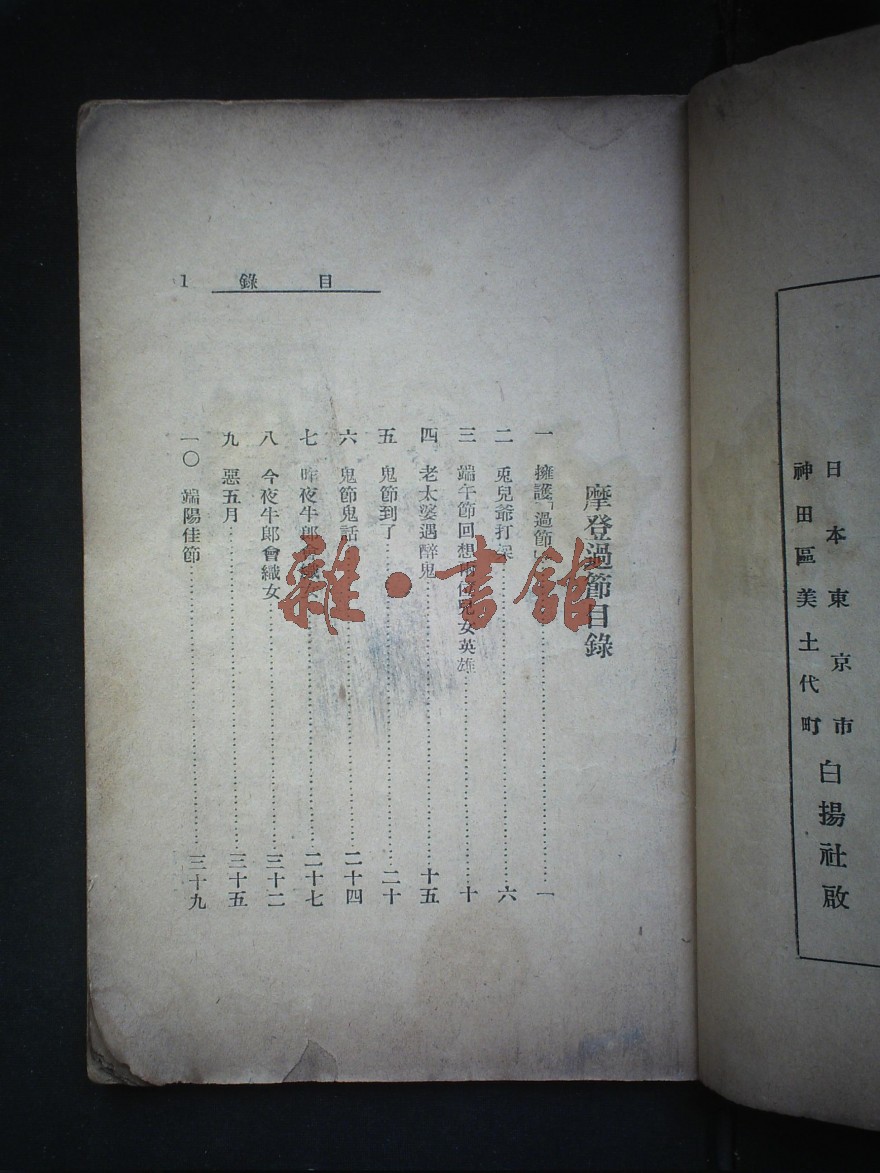 日本東京市
神田區美土代町
白揚社啟
目錄 1
摩登過節目錄
一 擁護「過節」……一
二 兎兒爺打……六
三 端午節回想兒女英雄……十
四 老太婆遇醉鬼……十五
五 鬼節到了……二十
六 鬼節鬼話……二十四
七 昨夜牛郎……二十七
八 今夜牛郎會織女……三十二
九 惡五月……三十五
一〇 端陽佳節……三十九
雜·書館